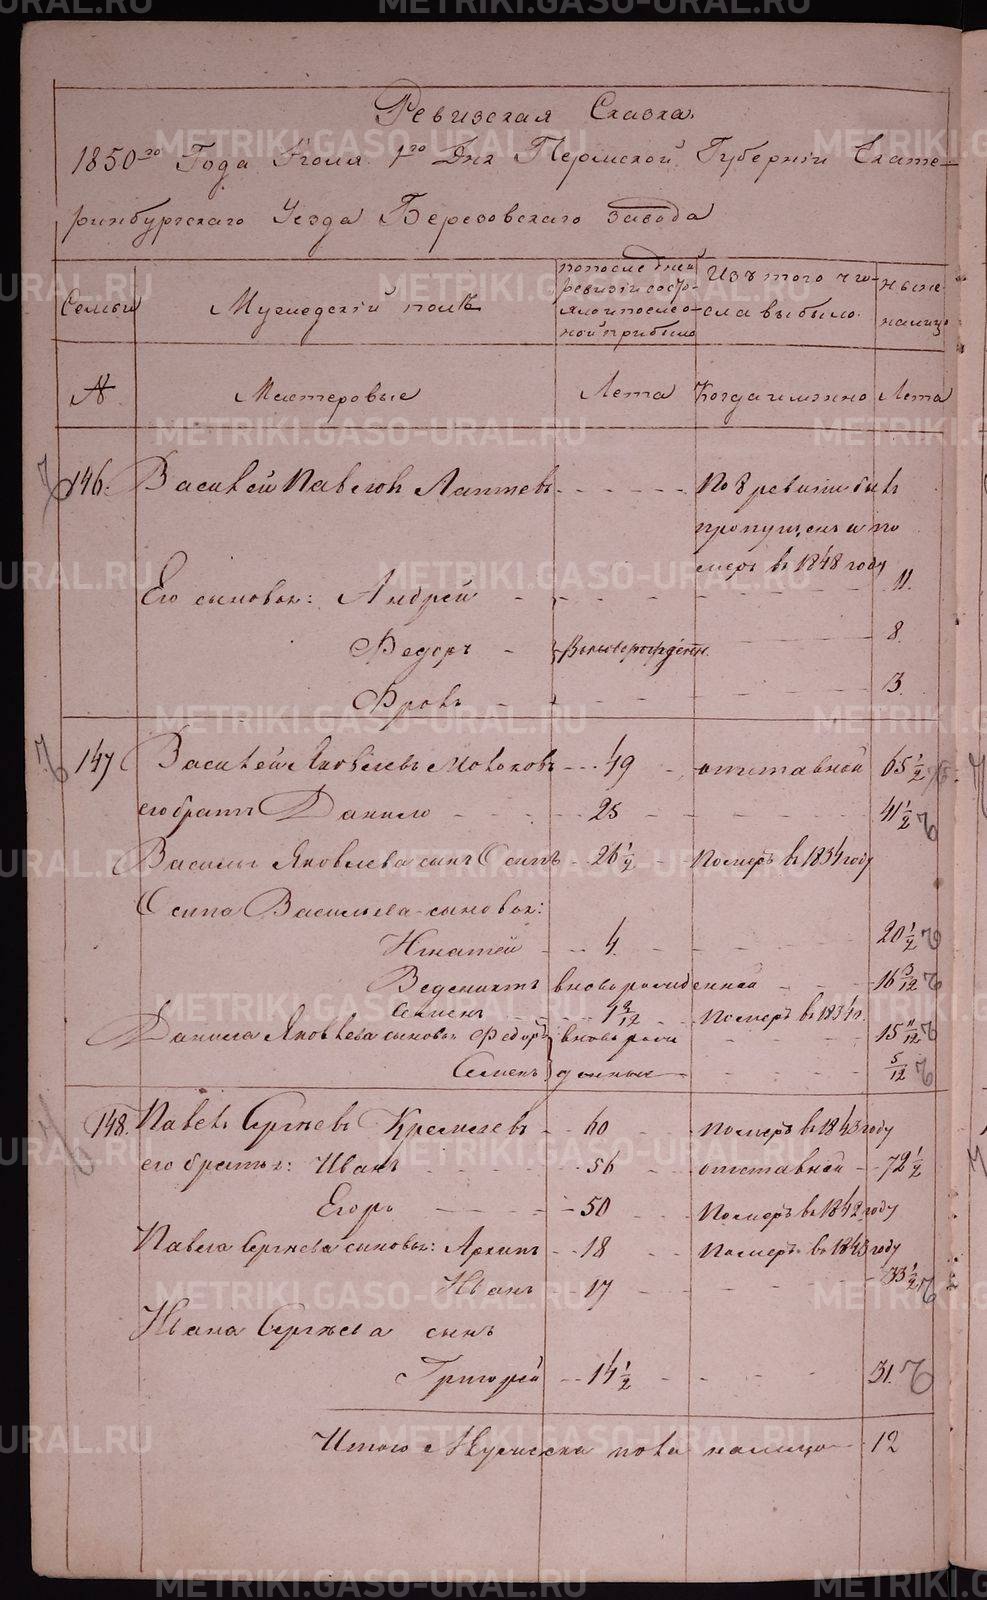 Ревизская Сказка
1850го Года Июля 1го Дня Пермской Губерніи Екате-
ринбургскаго Уезда Березовскаго завода
Семьи
Мужескій полъ
попоследней ревизіи состояло и после оной прибыло
Изъ того числа выбыло
ныне налицо
№
Мастеровые
Лета
Когда именно
Лета
146. Василей Павловъ Лаптевъ По 8 ревизіи былъ
пропущенъ и по
меръ въ 1848 году
Его сыновья: Андрей 11.
Федоръ вновьрожденны 8.
Фролъ 3.
147 Василей Яковлевъ 49 отставной 65 1/2
его братъ Данило 25 41 1/2
Василья Яковлева сынъ Осипъ 26 1/2 Померъ въ 1834 году
Осипа Васильева сыновья:
Игнатей 4. 20 1/2
Веденихтъ вновь рожденной 16 3/12
Семенъ Померъ въ 1834 г.
Данила Яковлева сыновья Федоръ вновь рож 15 11/12
Семенъ денные 5/12
148. Павелъ Сергѣевъ 60 Померъ въ 1843 году
его братья: Иванъ 56 отставной 72 1/2
Егоръ 50 Померъ въ 1842 году
Павла Сергѣева сыновья: Архипъ 18 Померъ въ 1843 году
Иванъ 17 33 1/2
Ивана Сергѣева сынъ
Григорей 14 1/2 31.
Итого Мужеска пола налицо 12
METRIKI.GASO-URAL.RU